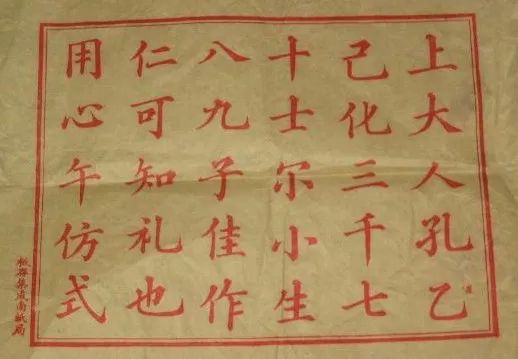 上大人孔乙
己化三千七
十士尔小生
八九子佳作
仁可知礼也
用心午仿式